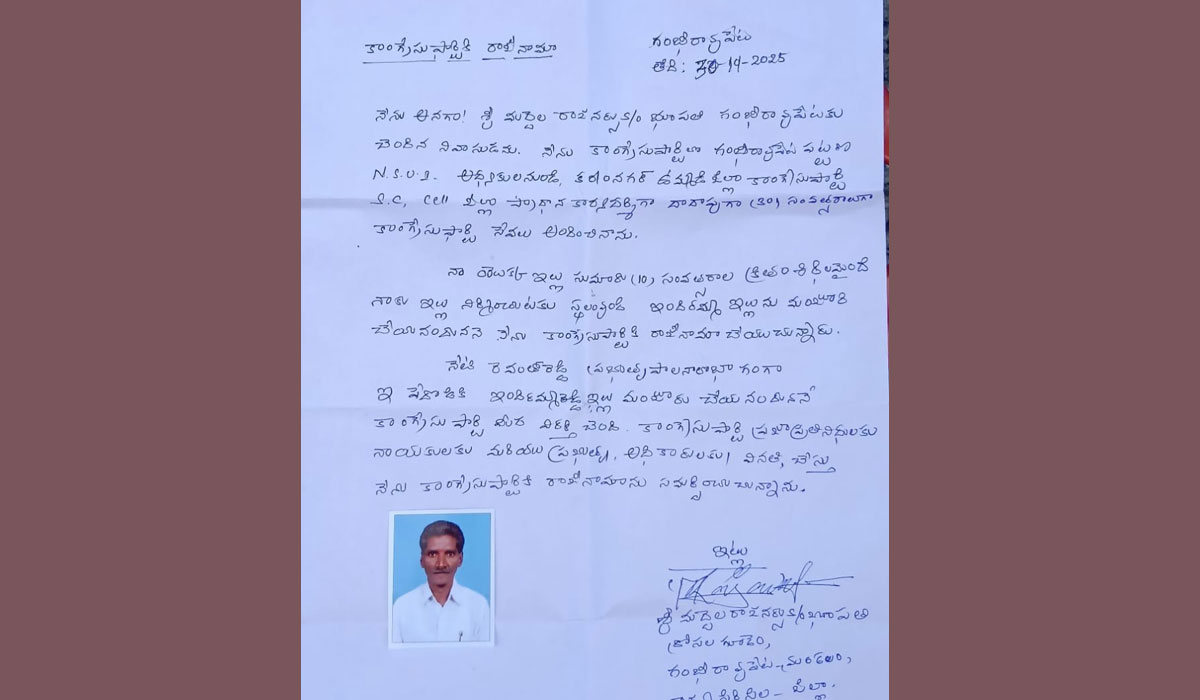 కాంగ్రేసుపార్టికి రాజీనామా
గంభీరావుపేట
తేది: 30-11-2025
నేను అనగా! శ్రీ మద్దెల రాజనర్సు S/o భూపతి గంభీరావుపేటకు
చెందిన నివాసుడను. నేను కాంగ్రేసుపార్టిలో గంభీరావుపేట పట్టణ
N.S.U.I. అధ్యక్షులనుండి, కరీంనగర్ ఉమ్మడి జిల్లా కాంగ్రేసుపార్టి
S.C, Cell జిల్లా ప్రధాన కార్యదర్శిగా దాదాపుగా (30) సంవత్సరాలుగా
కాంగ్రేసుపార్టి సేవలు అందించినాను.
నా ఇల్లు సుమారు (10) సంవత్సరాల క్రితం శిథిలమైంది
నాకు ఇల్లు నిర్మించుటకు స్థలంవుండి ఇందిరమ్మ ఇల్లును మంజూరి
చేయనందుననె నేను కాంగ్రేసుపార్టికి రాజీనామా చేయుచున్నాను.
నేటి రేవంత్‌రెడ్డి ప్రభుత్వపాలనలో భాగంగా
ఇ పేదోడికి ఇల్లు మంజూరు చేయనందుననే
కాంగ్రేసుపార్టి మీద విరక్తి చెంది. కాంగ్రేసుపార్టి ప్రజాప్రతినిధులకు
నాయకులకు మరియు ప్రభుత్వ, అధికారులకు వినతి, చేస్తు
నేను కాంగ్రేసుపార్టికి రాజీనామాను సమర్పించుచున్నాను.
ఇట్లు
శ్రీ మద్దెల రాజనర్సు S/o భూపతి
గంభీరావుపేట-మండలం,
జిల్లా.